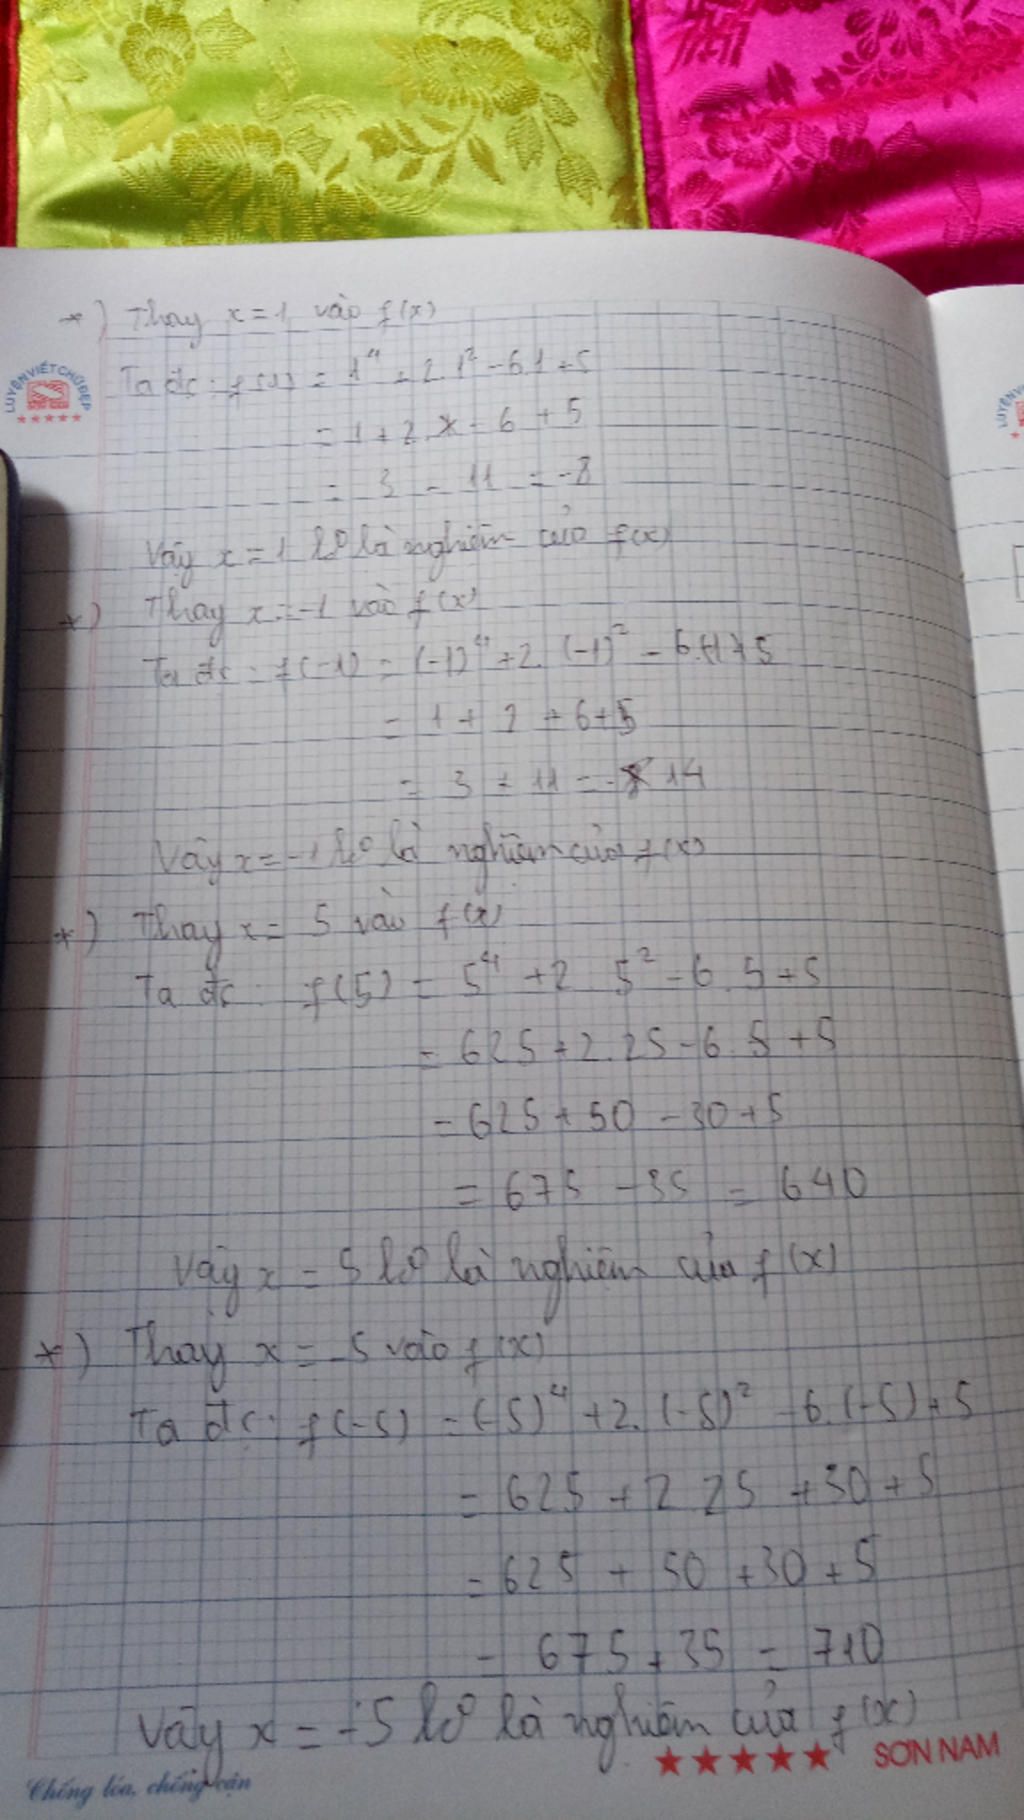 *) Thay x = 1 vào f(x)
LUYỆN VIẾT CHỮ ĐẸP
Ta đc: f(1) = 1⁴ + 2.1² - 6.1 + 5
= 1 + 2 - 6 + 5
= 3 - 11 = -8
Vậy x = 1 ko là nghiệm của f(x)
*) Thay x = -1 vào f(x)
Ta đc: f(-1) = (-1)⁴ + 2. (-1)² - 6.(-1)+5
= 1 + 2 + 6 + 5
= 3 + 11 = 14
Vậy x = -1 ko là nghiệm của f(x)
*) Thay x = 5 vào f(x)
Ta đc: f(5) = 5⁴ + 2. 5² - 6.5 + 5
= 625 + 2.25 - 6.5 + 5
= 625 + 50 - 30 + 5
= 675 - 35 = 640
Vậy x = 5 ko là nghiệm của f(x)
*) Thay x = -5 vào f(x)
Ta đc: f(-5) = (-5)⁴ + 2. (-5)² - 6.(-5) + 5
= 625 + 2.25 + 30 + 5
= 625 + 50 + 30 + 5
= 675 + 35 = 710
Vậy x = -5 ko là nghiệm của f(x)
SƠN NAM
Chống lóa, chống cận